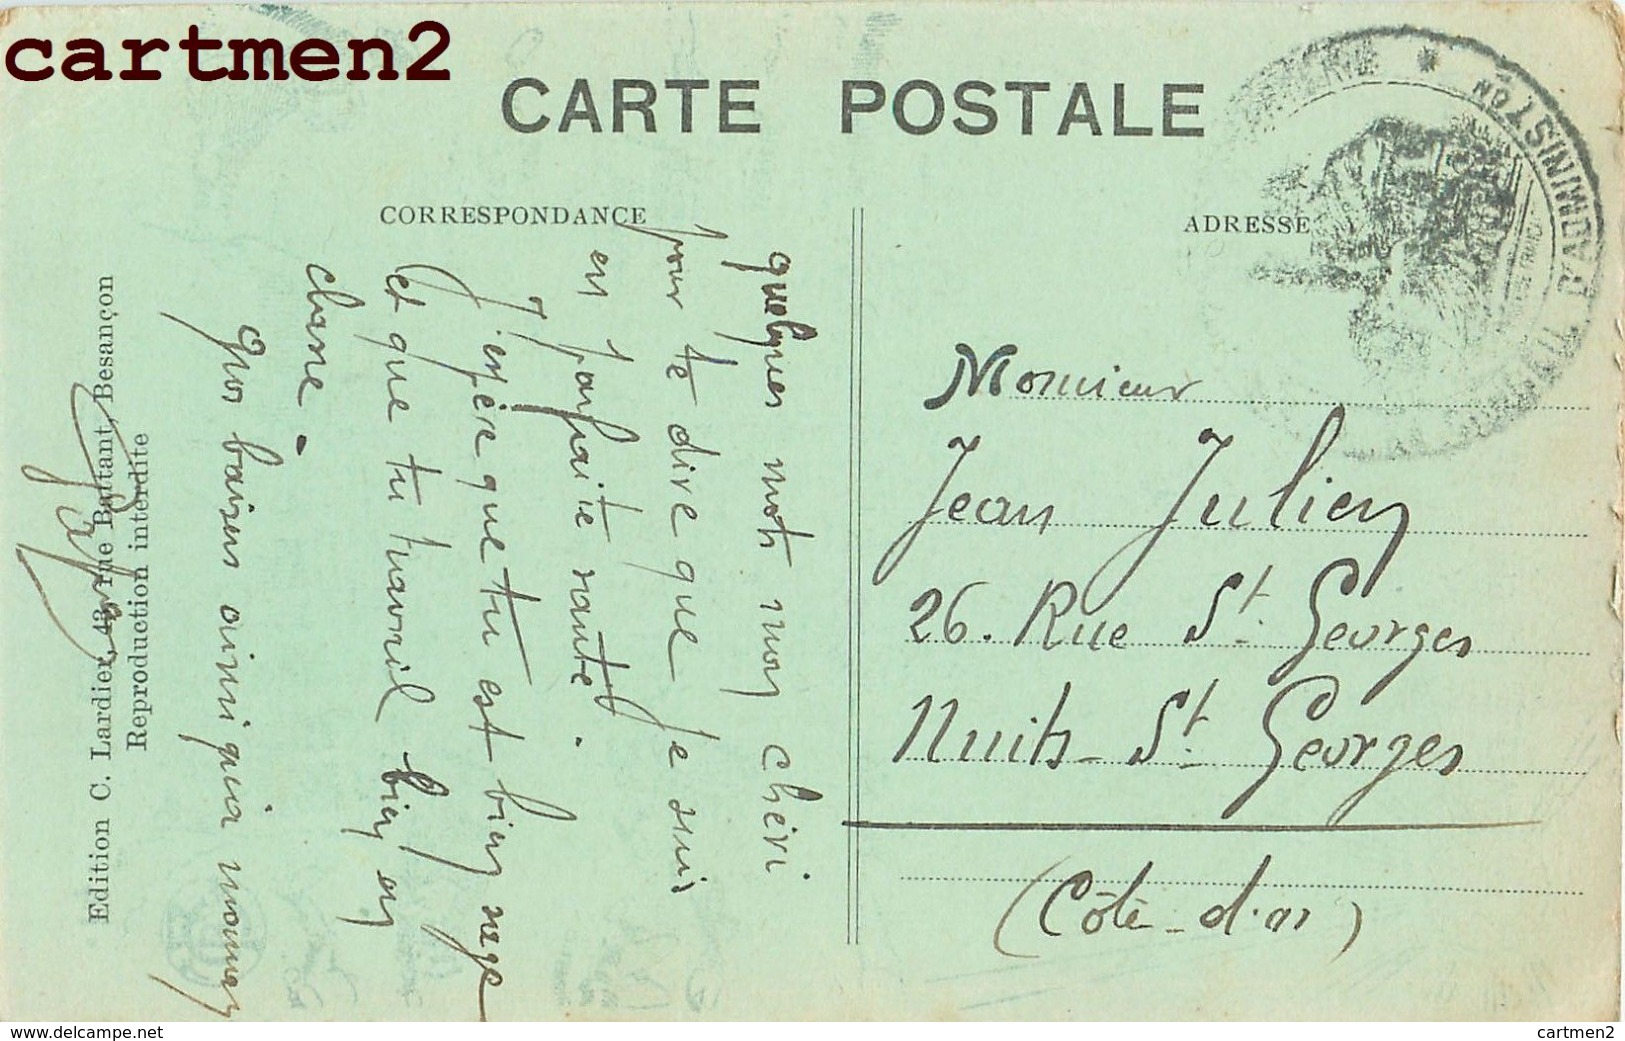 cartmen2
CARTE POSTALE
CORRESPONDANCE
ADRESSE
quelques mots mon chéri
pour te dire que je suis
en parfaite santé.
J'espère que tu est bien sage
et que tu travail bien en
classe.
Gros baisers ainsi qu'a maman
Monsieur
Jean Julien
26. Rue St. Georges
Nuits-St. Georges
(Côte-d'or)
Edition C. Lardier, 43, rue Battant, Besançon
Reproduction interdite
D'ADMINISTON
www.delcampe.net
cartmen2